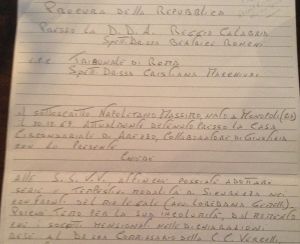 PROCURA DELLA REPUBBLICA
PRESSO LA D.D.A. REGGIO CALABRIA
SPETT. DR.SSA BEATRICE RONCHI
E P.C. TRIBUNALE DI ROMA
SPETT. DR.SSA CRISTIANA MACCHIUSI
IL SOTTOSCRITTO NAPOLETANO MASSIMO, NATO A MONOPOLI (BA)
IL 30.12.69 ATTUALMENTE DETENUTO PRESSO LA CASA
CIRCONDARIALE DI AREZZO, COLLABORATORE DI GIUSTIZIA
CON LA PRESENTE
CHIEDE
ALLE S.S. V.V. AFFINCHÉ POSSIATE ADOTTARE
SERIE E TEMPESTIVE MODALITÀ DI SICUREZZA NEI
CONFRONTI DEL MIO LEGALE (AVV. LOREDANA
POICHÉ TEMO PER LA SUA INCOLUMITÀ, DAL MOMENTO
I SOGGETTI MENZIONATI NELLE DICHIARAZIONI
RESE AL DR.SSA COMMISSARIO DELLA C.C. VERCELLI